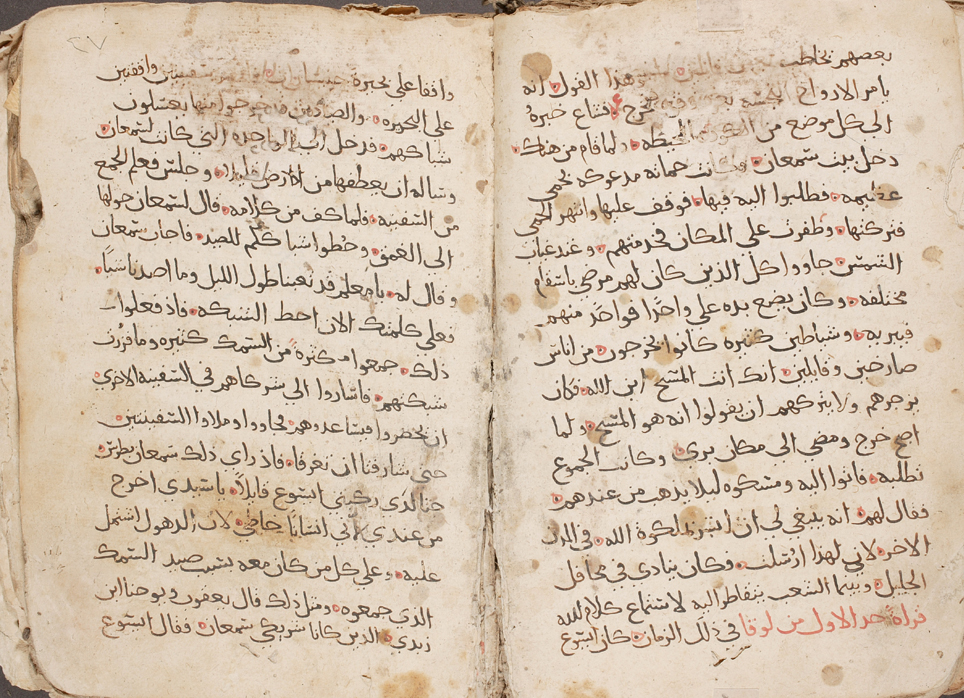 بعضهم يخاطب قايلين وهذا القول انه
يامر الارواح النجسه فتخرج فشاع خبره
الى كل موضع من المحيطه ولما قام من هناك
دخل بيت سمعان وكانت حماته مدعوكه بحمى
عظيمه فطلبوا اليه فيها فوقف عليها وانتهر الحمى
فتركتها وطفرت على المكان تخدمهم وعند غياب
الشمس جاووا كل الذين كان لهم مرضى باسقام
مختلفه وكان يضع يده على واحدا فواحد منهم
فيبريه وشياطين كثيره كانوا يخرجون من اناس
صارخين وقايلين انك انت المسيح ابن الله فكان
يزجرهم ولا يتركهم ان يقولوا انه هو المسيح ولما
اصبح خرج ومضى الى مكان بري وكانت الجموع
تطلبه فاتوا اليه ومسكوه ليلا يذهب من عندهم
فقال لهم انه ينبغي لي ان ابشر لكرة الله في المدن
الاخر لاني لهذا ارسلت فكان ينادي في محافل
الجليل وبينما الشعب يتقاطر اليه لاستماع كلام الله
قراة حد الاول من لوقا في ذلك الزمان كان ايسوع
واقفا على بحيرة سفينتين واقفتين
على البحيره والصيادين قد خرجوا منها يغسلون
شباكهم فدخل الى الواحده التي كانت لسمعان
وساله ان يعطفها من الارض قليلا وجلس فعلم الجمع
من السفينه فلما كف من كلامه قال لسمعان حولها
الى العمق وحطوا شباككم للصيد فاجاب سمعان
وقال له يا معلم قد تعبنا طول الليل وما اصدنا شيا
فعلى كلمتك الان احط الشبكه فاذ فعلوا
ذلك جمعوا كثرة من السمك كثيره وما فزرت
شبكتهم فاشاروا الى شركاهم في السفينه الاخرى
ان يحضروا فيساعدوهم فجاووا وملاوا السفينتين
حتى شارفتا ان تغرقا فاذ راى ذلك سمعان بطرس
جثا لدى ركبتي ايسوع قايلا يا سيدي اخرج
من عندي لاني انسانا خاطي لان الدهول اشتمل
عليه وعلى كل من كان معه بسبب صيد السمك
الذي جمعوه ومثل ذلك قال يعقوب ويوحنا ابن
زبدي الذين كانا شريكي سمعان فقال ايسوع